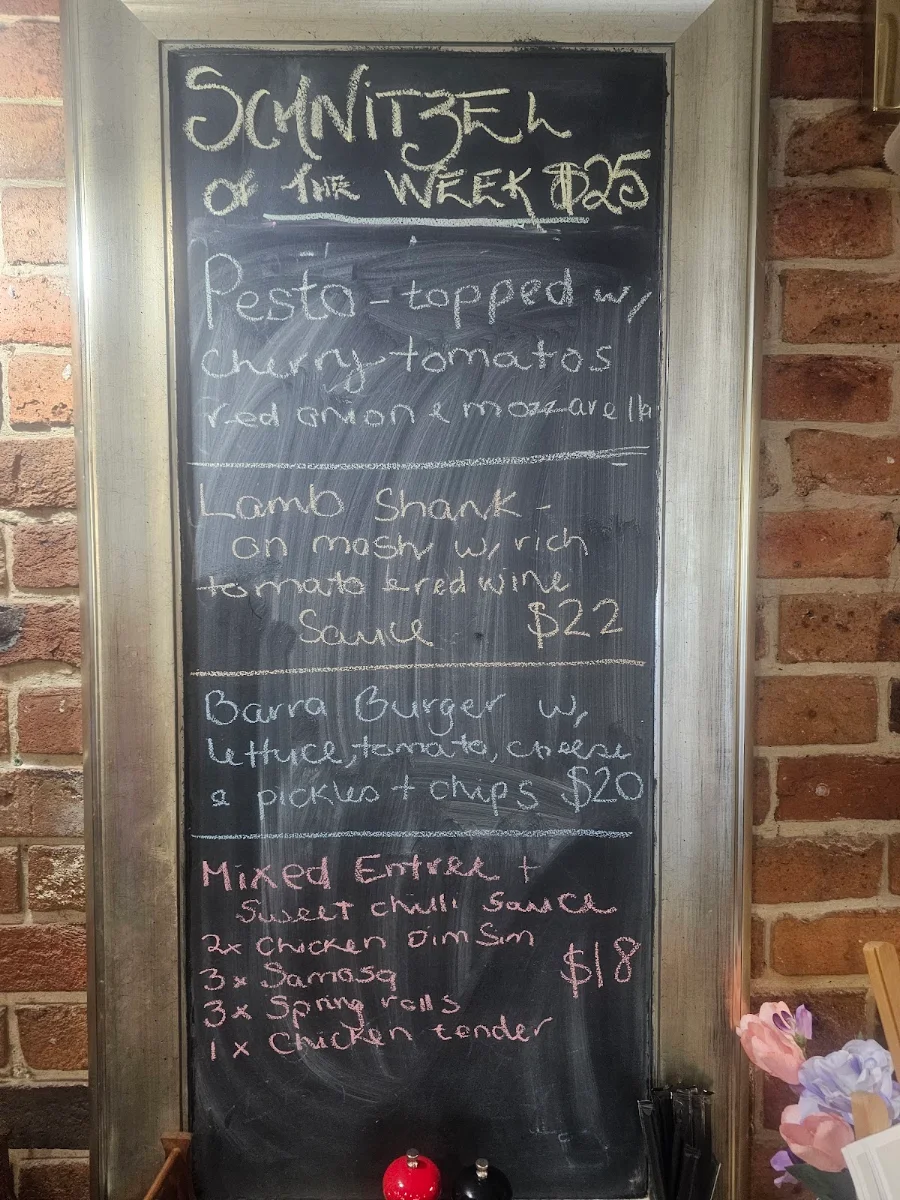 SCHNITZEL
OF THE WEEK $25
Pesto - topped w/
cherry tomatos
red onion & mozzarella
Lamb Shank -
on mash w/ rich
tomato & red wine
Sauce $22
Barra Burger w/
lettuce, tomato, cheese
& pickles + chips $20
Mixed Entree +
Sweet chilli Sauce
2x Chicken Dim Sim
3x Samosa
$18
3x Spring rolls
1x Chicken tender